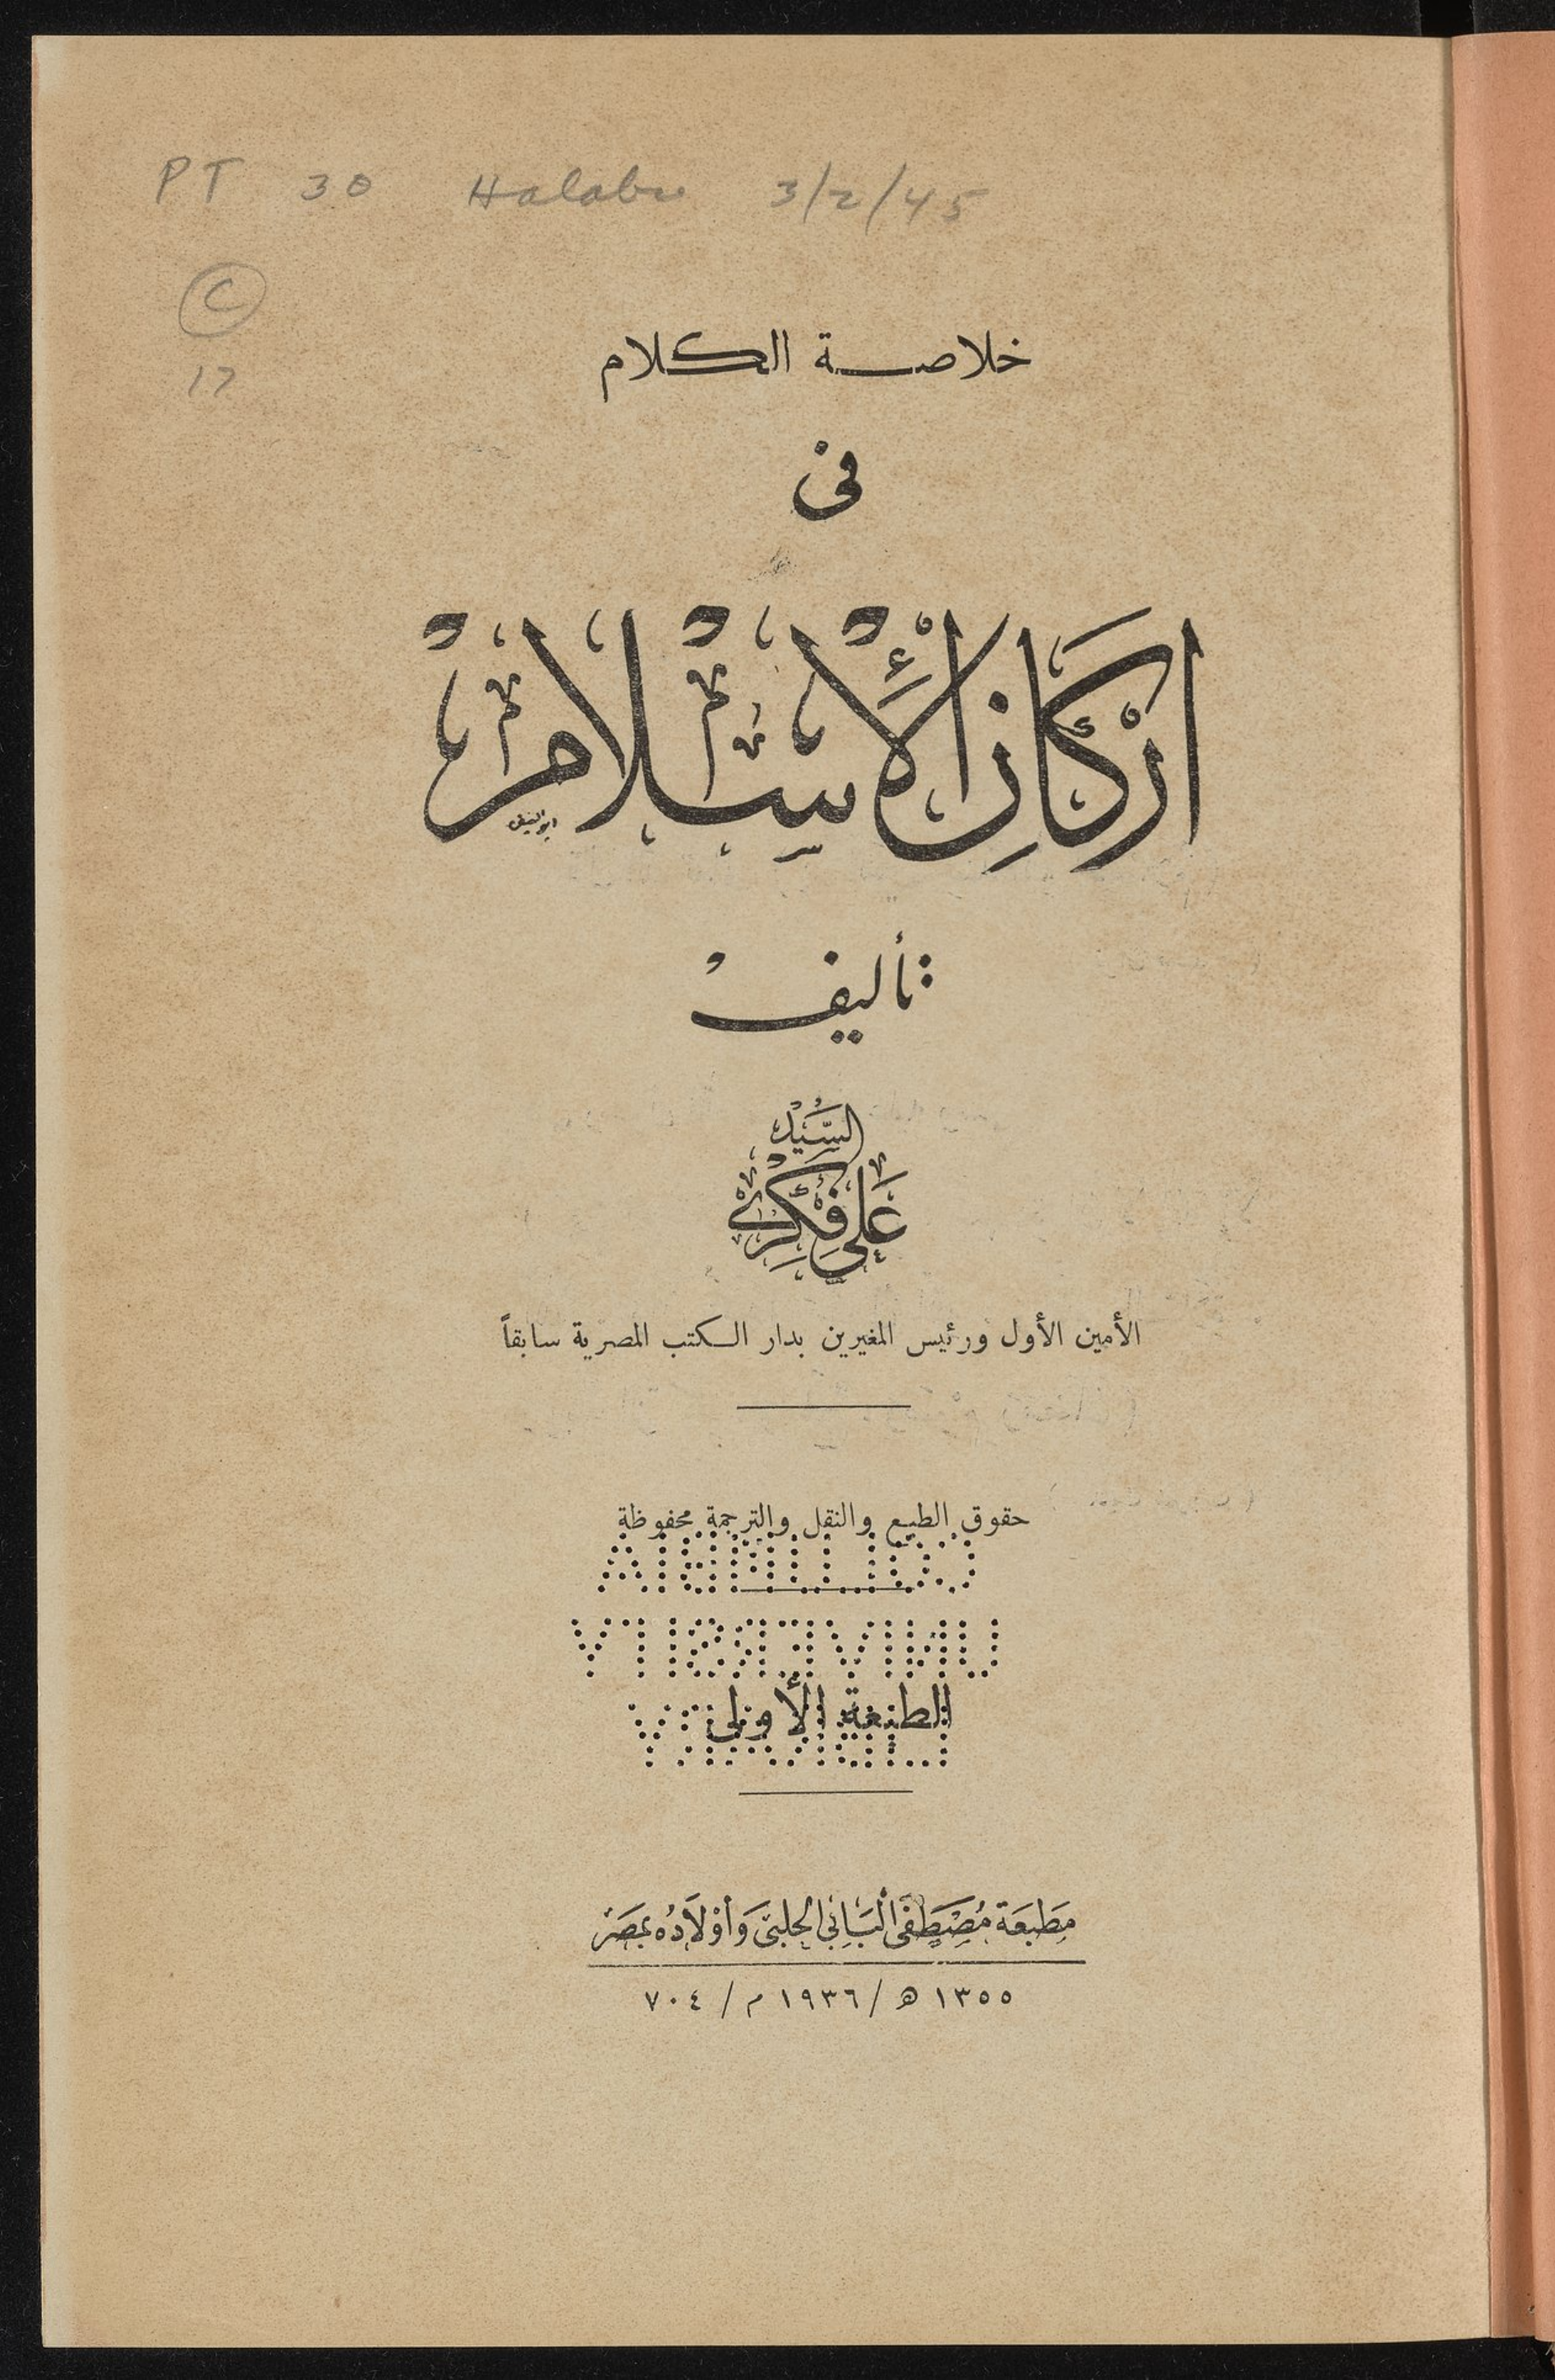 PT 30 Halabi 3/2/45
C
17
خلاصة الكلام
فى
أركان الإسلام
تأليف
السيد
على فكرى
الأمين الأول ورئيس المغيرين بدار الكتب المصرية سابقاً
حقوق الطبع والنقل والترجمة محفوظة
COLUMBIA
UNIVERSITY
الطبعة الأولى
LIBRARY
مطبعة مصطفى البابى الحلبى وأولاده بمصر
١٣٥٥ هـ / ١٩٣٦ م / ٧٠٤